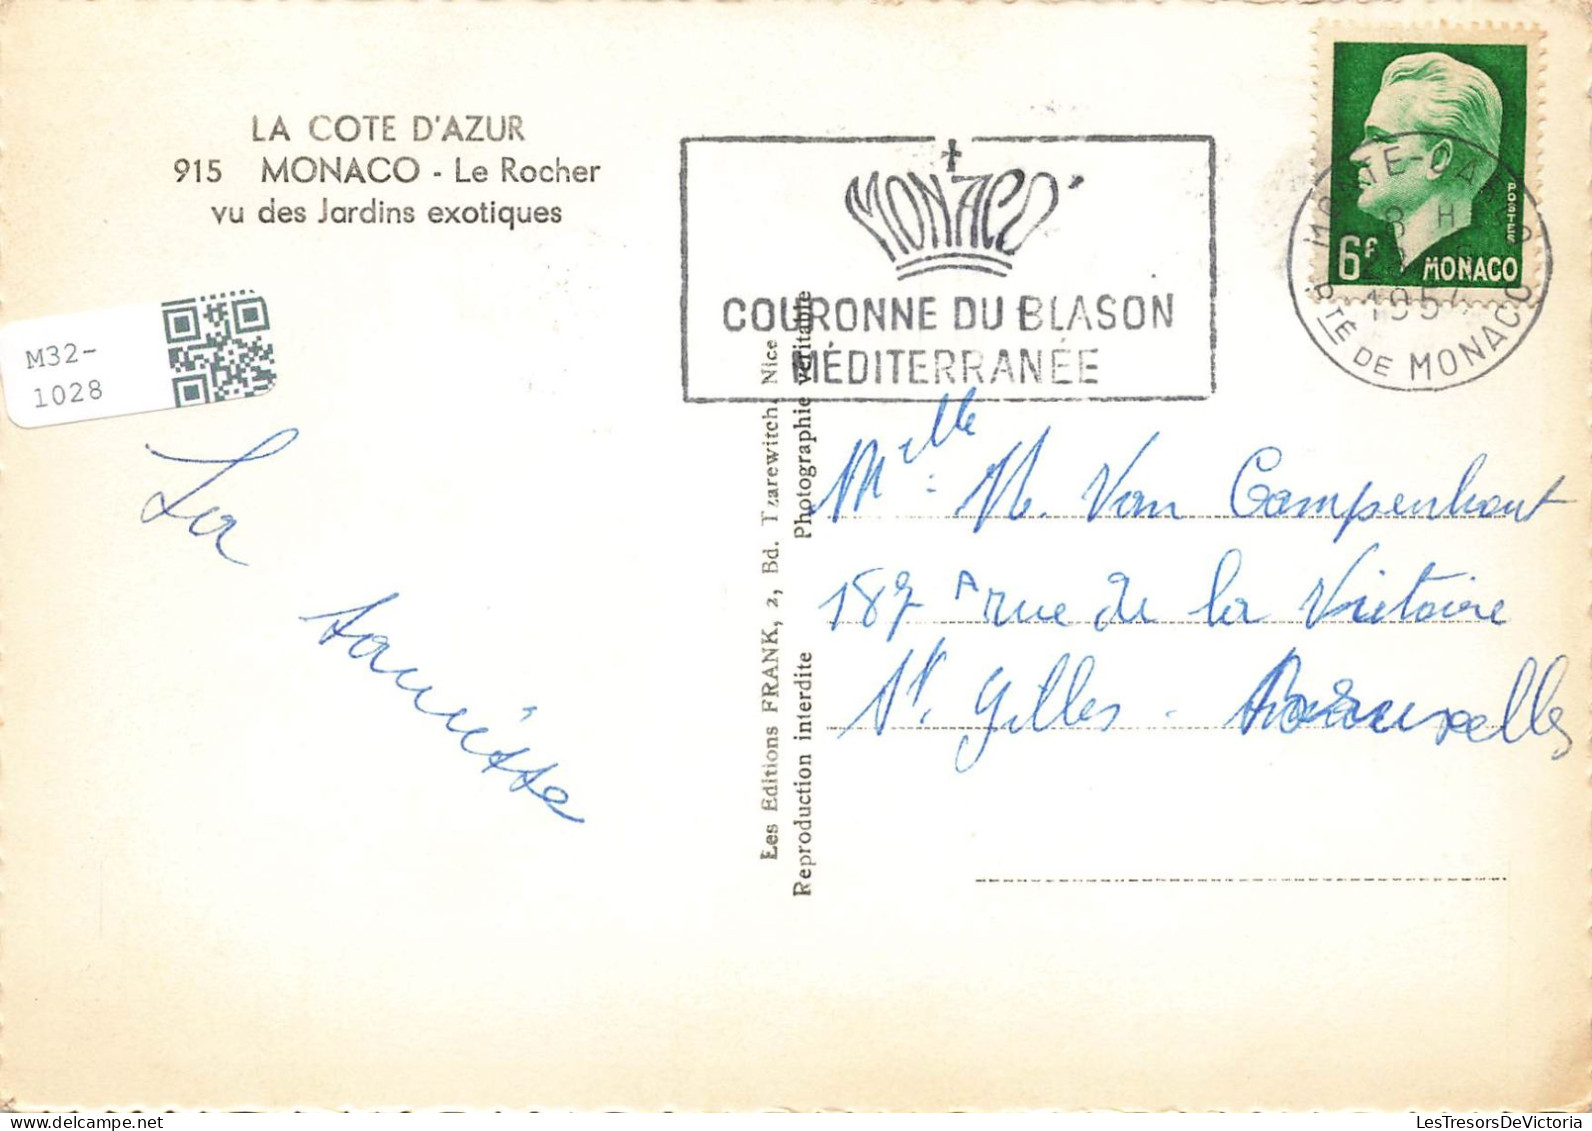 LA COTE D'AZUR
915 MONACO - Le Rocher
vu des Jardins exotiques
M32-
1028
MONACO
COURONNE DU BLASON
MÉDITERRANÉE
POSTES
6F MONACO
MONTE-CARLO
8 H
1954
PTÉ DE MONACO
Les Editions FRANK, 2, Bd. Tzarewitch, Nice
Reproduction interdite Photographie véritable
La
Mlle. M. Van Campenhout
187 A rue de la Victoire
St. Gilles. Bruxelles
LesTresorsDeVictoria